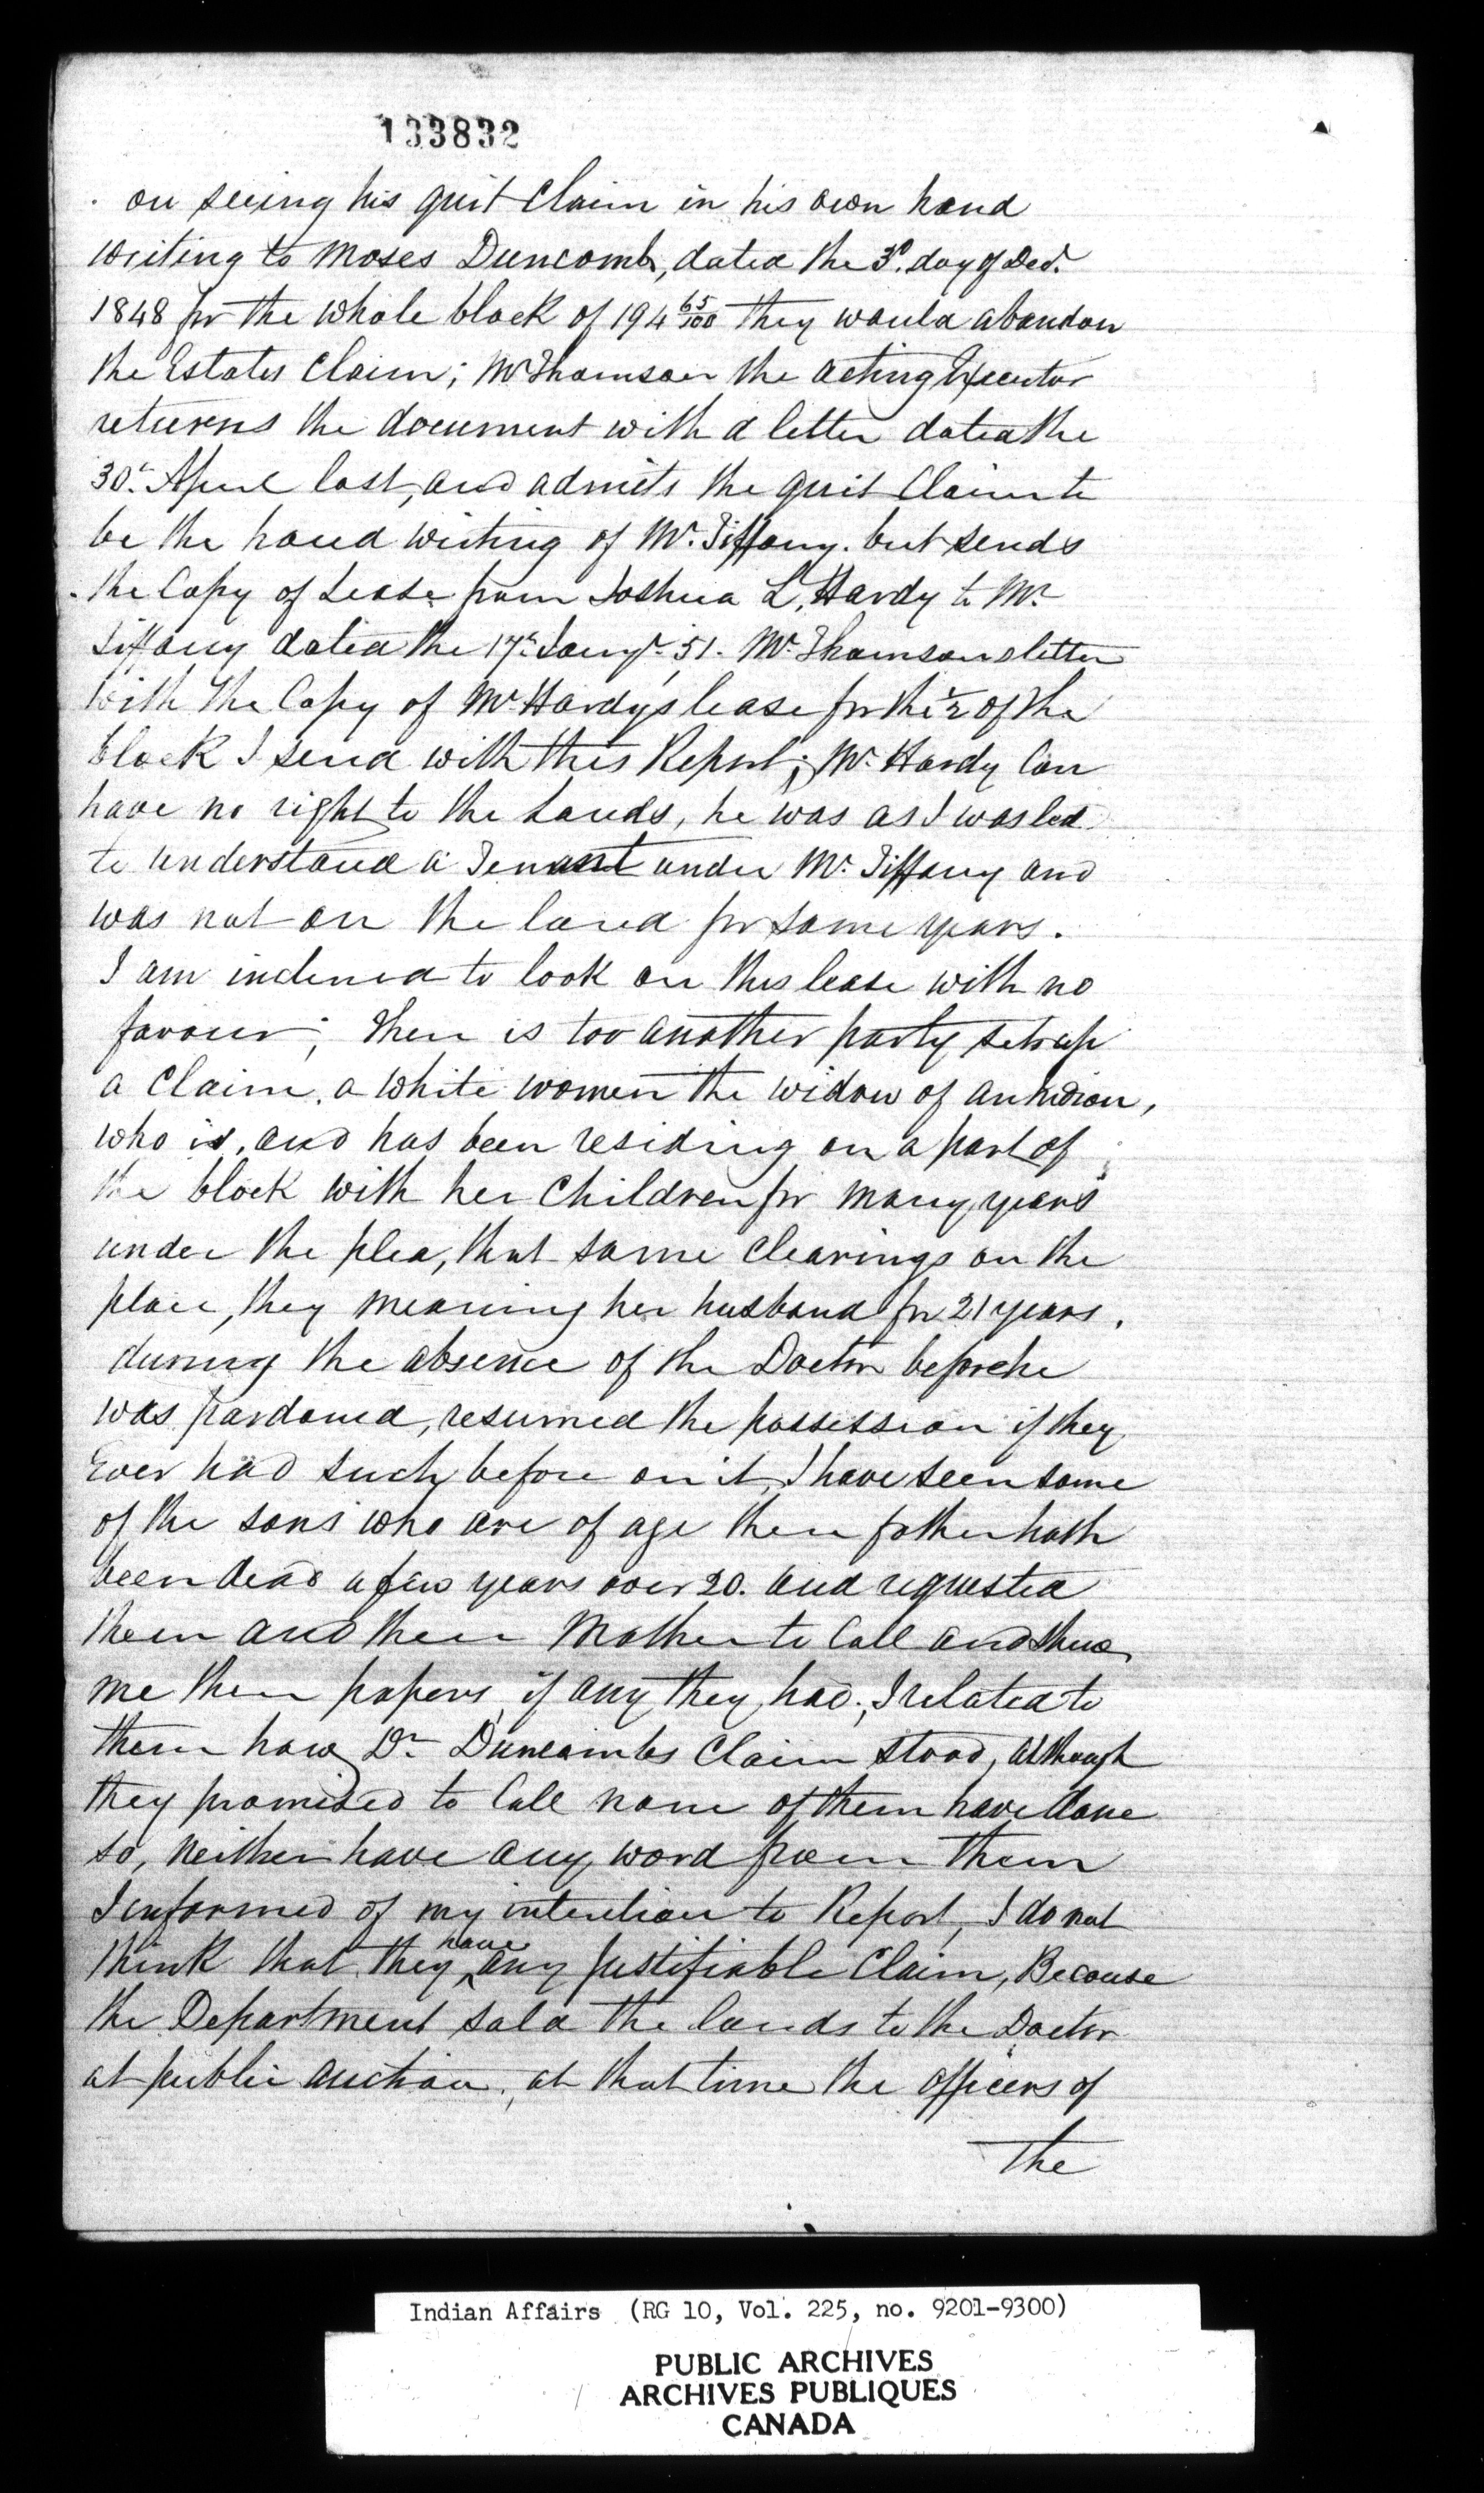 133832
on seeing his quit Claim in his own hand
writing to Moses Duncomb, dated the 3d. day of Decr.
1848 for the whole block of 194 65/100 they would abandon
the Estates Claim; Mr Thomson the acting Executor
returns the document with a letter dated the
30th April last, and admits the quit Claim to
be the hand writing of Mr. Tiffany. but sends
the Copy of Lease from Joshua L. Hardy to Mr
Tiffany dated the 17th Jany. 51. Mr Thomsons letter
with the Copy of Mr Hardy's lease for the ½ of the
block I send with this Report; Mr Hardy Can
have no right to the Lands, he was as I was led
to understand a Tenant under Mr Tiffany and
was not on the land for some years.
I am inclined to look on this lease with no
favour; then is too another party set up
a Claim, a white women the widow of an Indian,
who is, and has been residing on a part of
the block with her Children for many years
under the plea, that some Clearings on the
place, they meaning her husband for 21 years.
during the absence of the Doctor before he
was pardoned, resumed the possession if they
Ever had such before on it, I have seen some
of the sons who are of age their father hath
been dead a few years over 20. and requested
them and their Mother to Call and shew
me their papers, if any they had; I related to
them how Dr Duncombs Claim stood, although
they promised to Call none of them have done
so, neither have any word from them
I informed of my intention to Report, I do not
think that they have any Justifiable Claim, Because
the Department sold the lands to the Doctor
at public auction, at that time the officers of
the
Indian Affairs (RG 10, Vol. 225, no. 9201-9300)
PUBLIC ARCHIVES
ARCHIVES PUBLIQUES
CANADA